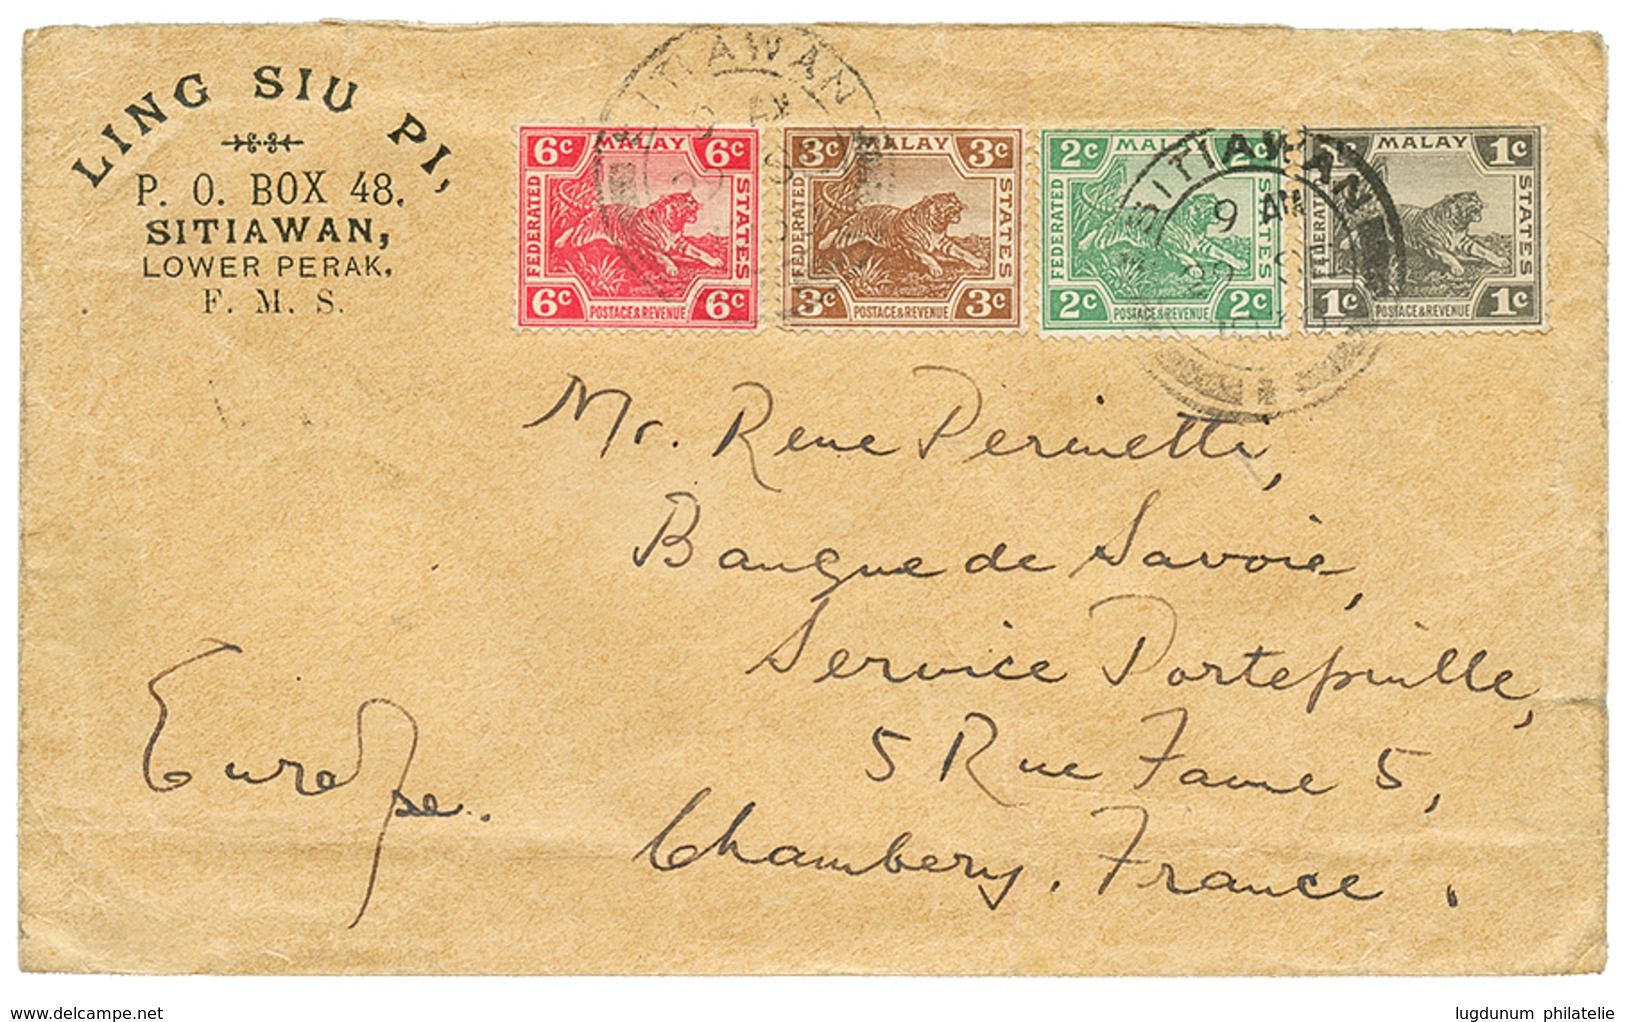 LING SIU PI,
P. O. BOX 48.
SITIAWAN,
LOWER PERAK.
F. M. S.
SITIAWAN
6c MALAY 6c
FEDERATED STATES
6c POSTAGE & REVENUE 6c
3c MALAY 3c
FEDERATED STATES
3c POSTAGE & REVENUE 3c
2c MALAY 2c
FEDERATED STATES
2c POSTAGE & REVENUE 2c
1c MALAY 1c
FEDERATED STATES
1c POSTAGE & REVENUE 1c
SITIAWAN
9 AM
Mr. Rene Perinetti,
Banque de Savoie,
Service Portefuille,
5 Rue Favre 5,
Chambery. France.
Europe.
delcampe.net
lugdunum philatelie